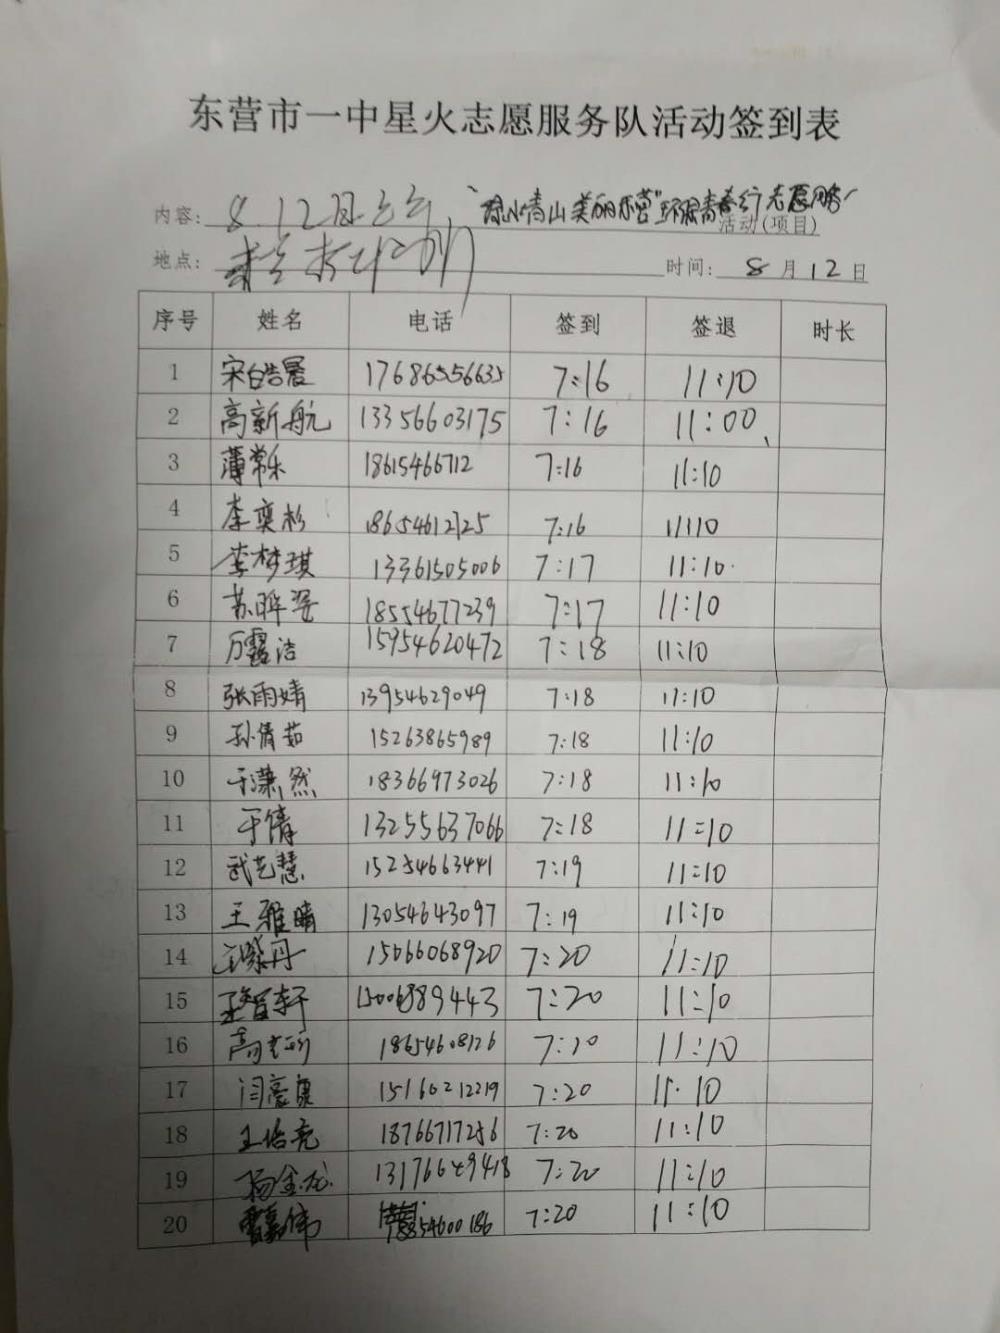 东营市一中星火志愿服务队活动签到表
内容: 8.12 "绿水青山 美丽东营"环保青春行志愿服务
活动(项目)
地点: 时间: 8月12日
序号 姓名 电话 签到 签退 时长
1 宋皓晨 17686556635 7:16 11:10
2 高新航 13356603175 7:16 11:00、
3 薄常乐 18615466712 7:16 11:10
4 李奕杉 18654612125 7:16 11:10
5 李梦琪 13361505006 7:17 11:10
6 苏晖翌 18554677239 7:17 11:10
7 万露洁 15954620472 7:18 11:10
8 张雨婧 13954629049 7:18 11:10
9 孙倩茹 15263865989 7:18 11:10
10 于潇然 18366973026 7:18 11:10
11 于倩 13255637066 7:18 11:10
12 武艺慧 15254663441 7:19 11:10
13 王雅晴 13054643097 7:19 11:10
14 15066068920 7:20 11:10
15 王智轩 15006889443 7:20 11:10
16 18654608126 7:20 11:10
17 闫豪康 15166212219 7:20 11:10
18 王浩亮 18766717256 7:20 11:10
19 杨金龙 13176649418 7:20 11:10
20 曹嘉伟 54600186 7:20 11:10